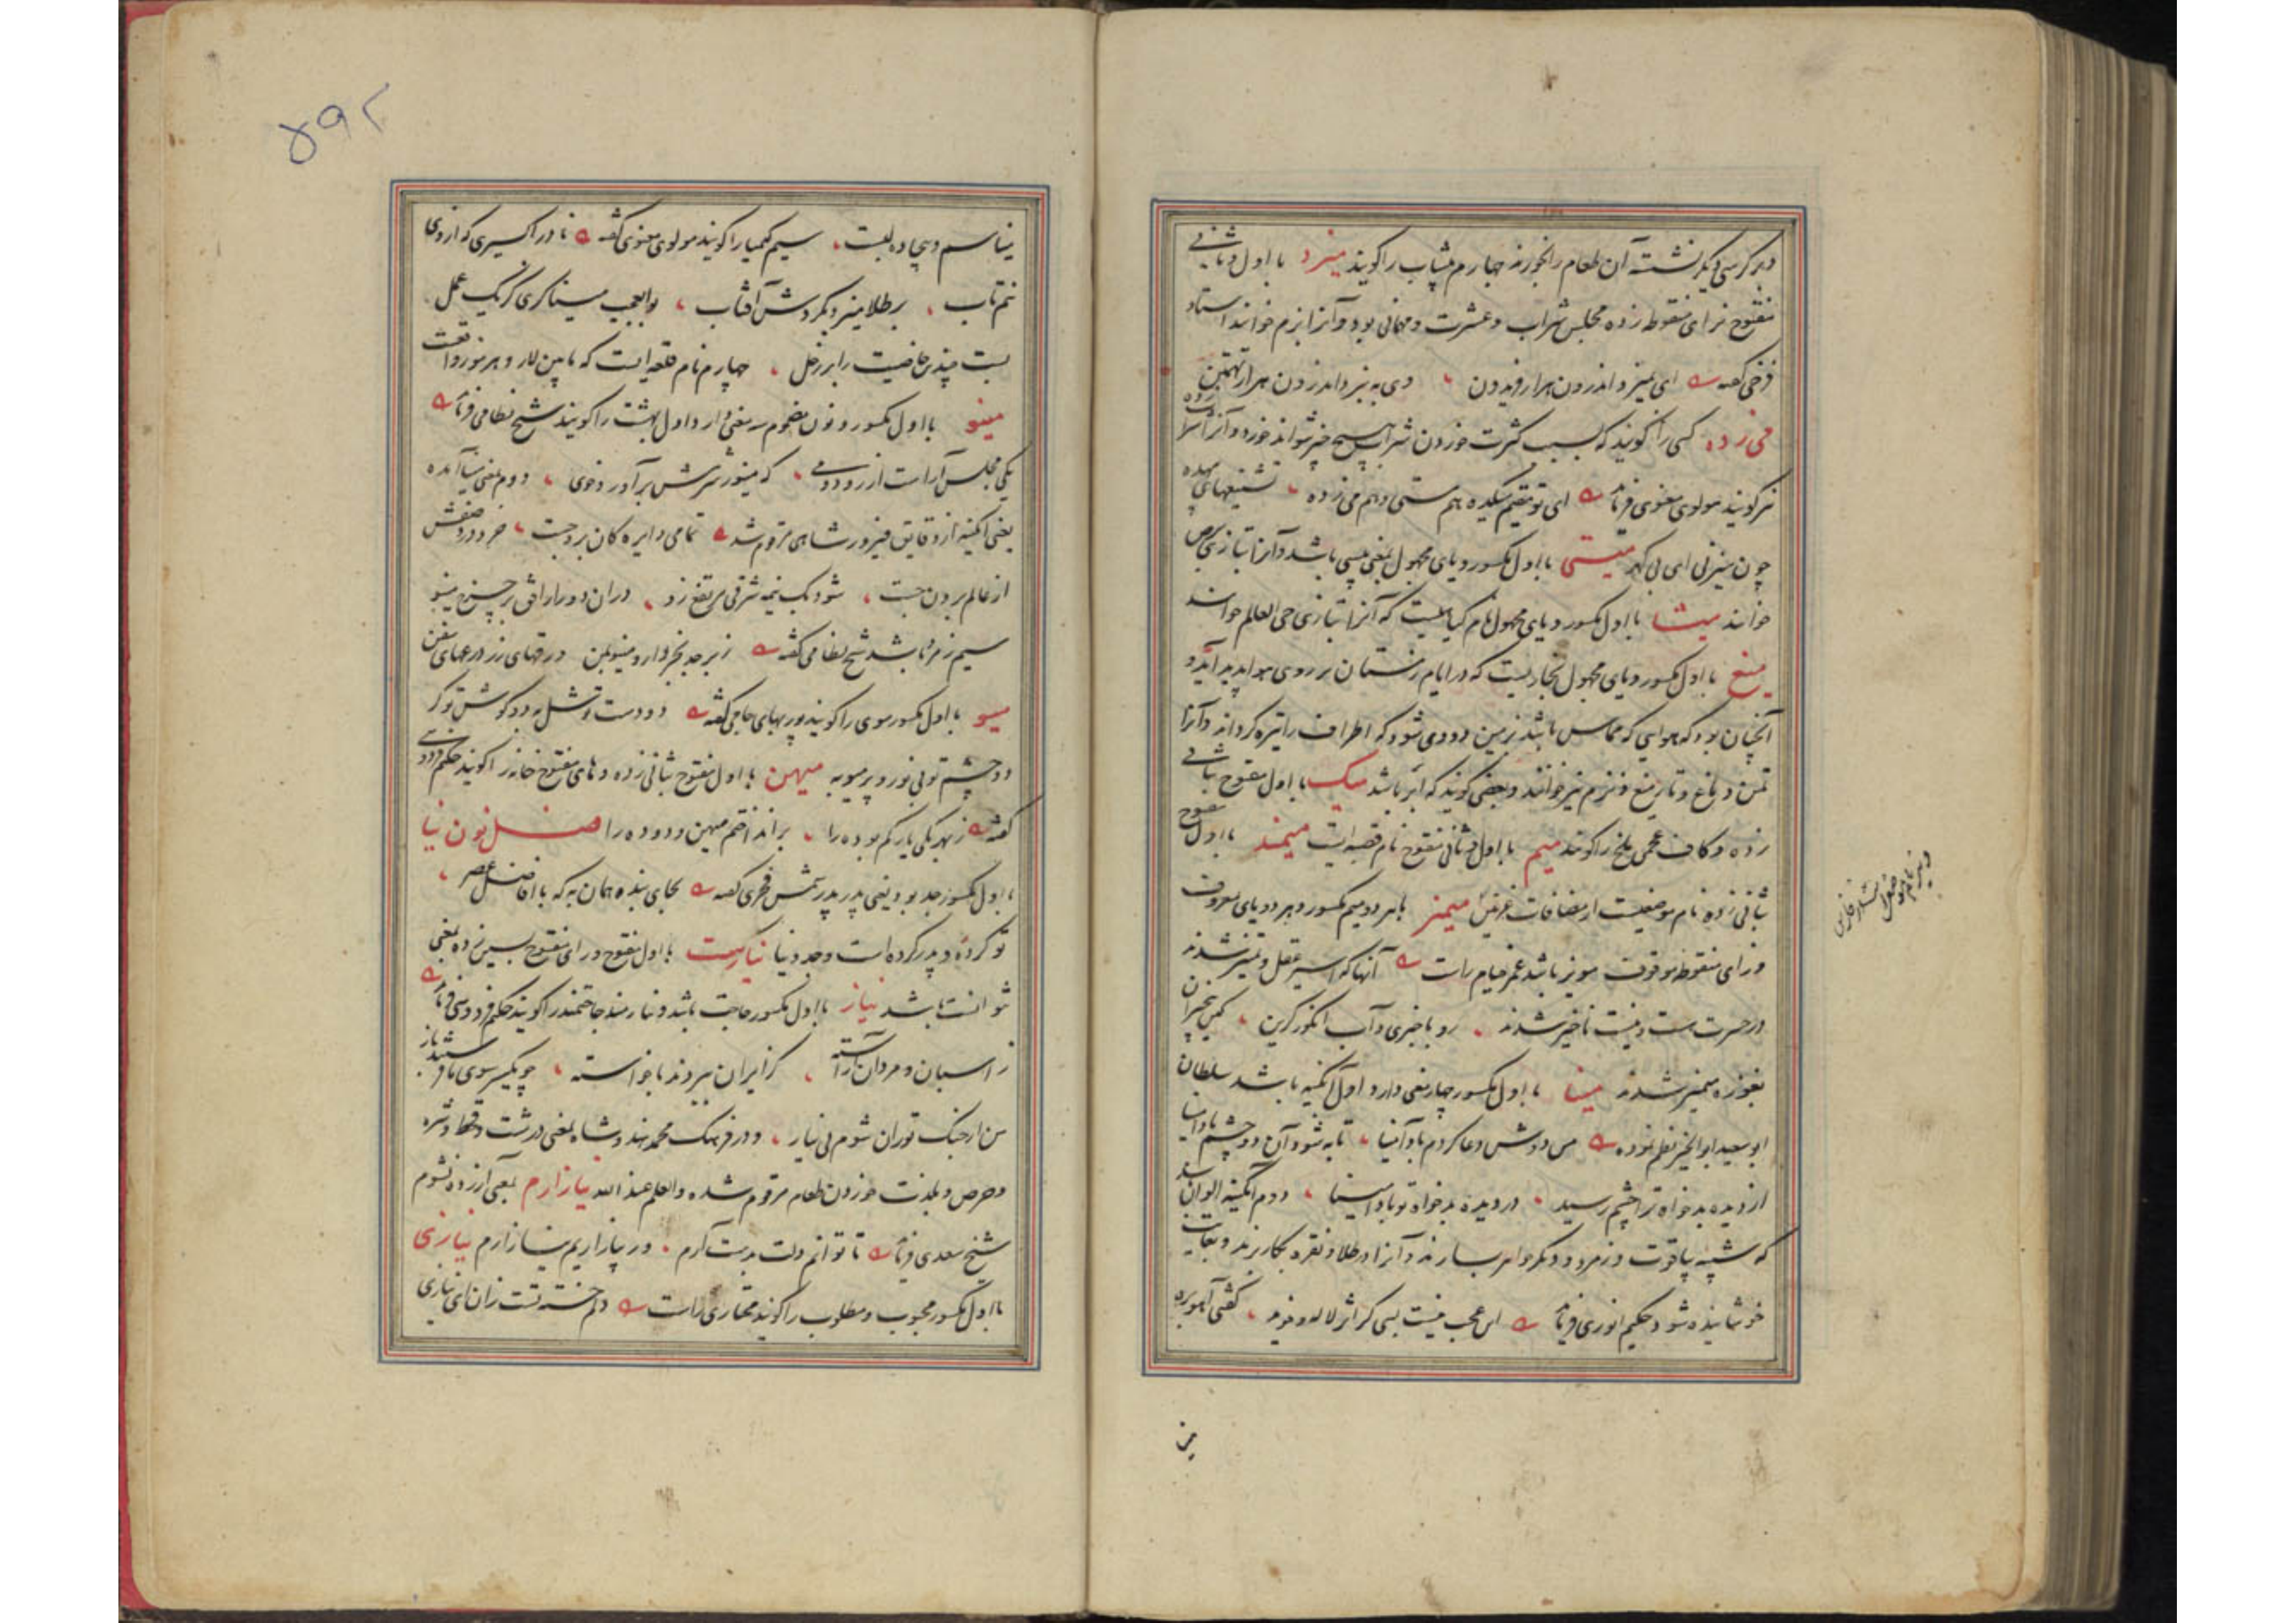 و بر کرسی دیگر نشسته آن طعام را بخورند چهارم پیشاب را گویند میزد با اول و ثانی
مفتوح بزای منقوط زده مجلس شراب و عشرت و مهمانی بود و آنرا بزم خوانند استاد
فرخی گفته ای بمیزد اندرون هزار فریدون وی به نبرد اندرون هزار تهمتن
می زده کسی را گویند که بسبب کثرت خوردن شراب هیچ چیز نتواند خورد و آنرا
نیز گویند مولوی معنوی فرماید ای تو مقیم میکده هم مستی و هم می زده تشنیعهای بیهده
چون میزنی ای بی گهر با اول مکسور و یای مجهول بمعنی پیسی باشد و آنرا بتازی برص
خوانند میشا با اول مکسور و یای مجهول نام گیاهیست که آنرا بتازی حی العالم خوانند
میغ با اول مکسور و یای مجهول بخاریست که در ایام زمستان بر روی هوا پدید آید و
آنچنان بود که هوایی که مماس باشد بزمین دودی شود که اطراف را تیره گرداند و آنرا
تمن و ماغ و تار میغ و نزم نیز خوانند و بعضی گویند که ابر باشد میک با اول مفتوح بثانی
زده و کاف عجمی ملخ را گویند میم با اول و ثانی مفتوح نام قصبه ایست میمند با اول مفتوح
بثانی زده نام موضعیست از مضافات غزنین میمیز با هر دو میم مکسور و هر دو یای معروف
و زای منقوطه موقوف مویز باشد عمر خیام راست آنها که اسیر عقل و تمیز شدند
در حسرت هست و نیست ناچیز شدند رو باخبری و آب انگور گزین کین بیخبران
بغوره میمیز شدند مینا با اول مکسور چهار معنی دارد اول آبگینه باشد سلطان
ابو سعید ابو الخیر نظم نموده من دوش دعا کردم و باد آمینا تا به شود آن دو چشم بادامینا
از دیده بدخواه ترا چشم رسید در دیده بدخواه تو بادا مینا دوم آبگینه الوان باشد
که شبیه بیاقوت و زمرد و دیگر جواهر سازند و آنرا در طلا و نقره بکار برند و بغایت
خوشاینده شود حکیم انوری فرماید این عجب نیست بسی کز اثر لاله و خوید گفتی آهوبره
مینا سم و بیجاده لبست سیم کیمیا را گویند مولوی معنوی گفته نادر اکسیری که از وی
نیم تاب بر طلا میزد بگردش آفتاب بوالعجب میناگری کز یک عمل
بست چندین خاصیت را بر زحل چهارم نام قلعه ایست که مابین لار و هرموز واقعست
مینو با اول مکسور و نون مضموم سه معنی دارد اول بهشت را گویند شیخ نظامی فرماید
یکی مجلس آراست از رود و می که مینو ز شرمش برآورد خوی دوم بمعنی مینا آمده
یعنی آبگینه از دقایق فیروزشاهی مرقوم شد تمامی دایره کان برد جست خرد در وصفش
از عالم برون جست شود یک نیمه شرقی مرتفع زو در آن دور ار افق بر چرخ مینو
سیم زمرد باشد شیخ نظامی گفته زبرجد بخروار و مینو بمن ورقهای زر درعهای سفن
میو با اول مکسور موی را گویند پوربهای جامی گفته دو دست تو شل به دو گوش تو کر
دو چشم تو بی نور و پر میو به میهن با اول مفتوح بثانی زده و های مفتوح خانه را گویند حکیم فردوسی
گفته ز بهر یکی یار گم بوده را برانداختم میهن و دوده را فصل نون نیا
با اول مکسور جد بود یعنی پدر پدر شمس فخری گفته بجای بنده همان به که با افاضل عصر
تو کرده و پدر کرده است و جد و نیا نیارست با اول مفتوح و رای مفتوح بسین زده بمعنی
نتوانست باشد نیاز با اول مکسور حاجت باشد و نیازمند حاجتمند را گویند حکیم فردوسی فرماید
ز اسبان و مردان آراسته کز ایران ببردند با خواسته چو یکسر سوی ما فرستید باز
من از جنگ توران شوم بی نیاز و در فرهنگ محمد هندوشاه بمعنی درشت و قحط و شره
و حرص و بلذت خوردن طعام مرقوم شده والعلم عند الله نیازارم بمعنی آزرده نشوم
شیخ سعدی فرماید تا توانم دلت بدست آرم ور بیازاریم نیازارم نیازی
با اول مکسور محبوب و مطلوب را گویند مختاری راست دلم خسته تست زان ای نیازی
مین
۵۹۲